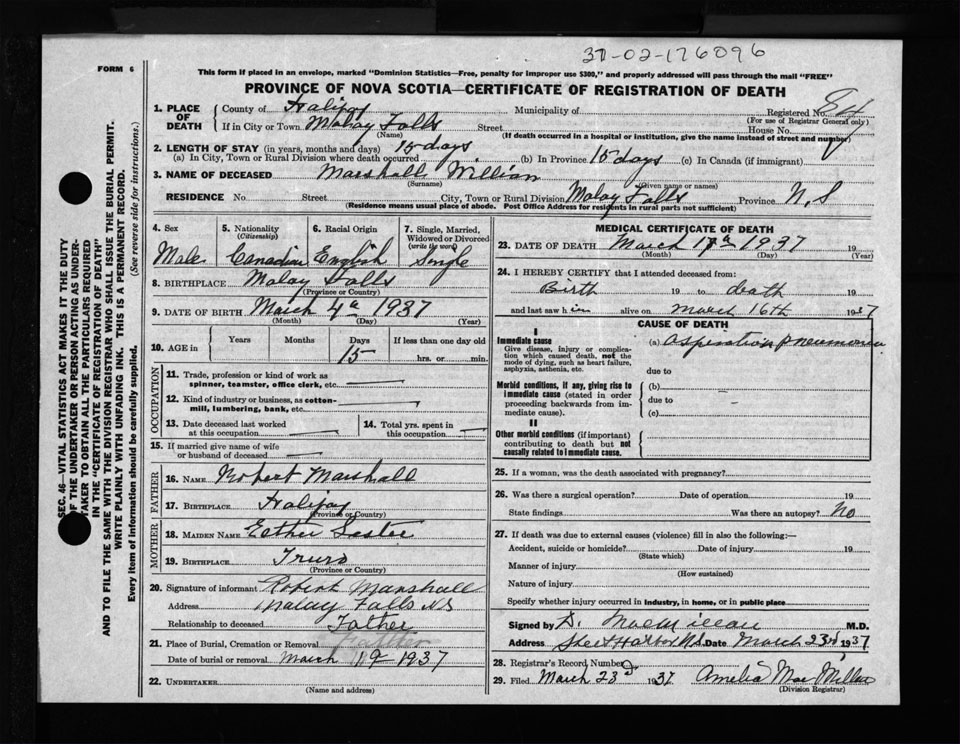 37-02-176096
FORM 6
This form if placed in an envelope, marked "Dominion Statistics—Free, penalty for improper use $300," and properly addressed will pass through the mail "FREE"
PROVINCE OF NOVA SCOTIA—CERTIFICATE OF REGISTRATION OF DEATH
SEC. 46—VITAL STATISTICS ACT MAKES IT THE DUTY
OF THE UNDERTAKER OR PERSON ACTING AS UNDER-
TAKER TO OBTAIN ALL THE PARTICULARS REQUIRED
IN THE "CERTIFICATE OF REGISTRATION OF DEATH"
AND TO FILE THE SAME WITH THE DIVISION REGISTRAR WHO SHALL ISSUE THE BURIAL PERMIT.
WRITE PLAINLY WITH UNFADING INK. THIS IS A PERMANENT RECORD.
Every item of information should be carefully supplied. (See reverse side for instructions.)
1. PLACE OF DEATH County of Halifax Municipality of Registered No. 84
(For use of Registrar General only)
If in City or Town Malay Falls Street House No.
(Name) (If death occurred in a hospital or institution, give the name instead of street and number)
2. LENGTH OF STAY (in years, months and days) 15 days
(a) In City, Town or Rural Division where death occurred (b) In Province 15 days (c) In Canada (if immigrant)
3. NAME OF DECEASED Marshall Willian
(Surname) (Given name or names)
RESIDENCE No. Street City, Town or Rural Division Malay Falls Province N.S
(Residence means usual place of abode. Post Office Address for residents in rural parts not sufficient)
4. Sex 5. Nationality (Citizenship) 6. Racial Origin 7. Single, Married, Widowed or Divorced (write the word)
Male Canadian English Single
8. BIRTHPLACE Malay Falls
(Province or Country)
9. DATE OF BIRTH March 4th 1937
(Month) (Day) (Year)
10. AGE in Years Months Days If less than one day old
15 hrs. or min.
OCCUPATION
11. Trade, profession or kind of work as
spinner, teamster, office clerk, etc.
12. Kind of industry or business, as cotton-
mill, lumbering, bank, etc.
13. Date deceased last worked
at this occupation
14. Total yrs. spent in
this occupation
15. If married give name of wife
or husband of deceased
FATHER
16. NAME Robert Marshall
17. BIRTHPLACE Halifax
(Province or Country)
MOTHER
18. MAIDEN NAME Esther
19. BIRTHPLACE Truro
(Province or Country)
20. Signature of informant Robert Marshall
Address Malay Falls NS
Relationship to deceased Father
21. Place of Burial, Cremation or Removal
Date of burial or removal March 19 1937
22. UNDERTAKER
(Name and address)
MEDICAL CERTIFICATE OF DEATH
23. DATE OF DEATH March 1937 19
(Month) (Day) (Year)
24. I HEREBY CERTIFY that I attended deceased from:
Birth 19 to death 19
and last saw him alive on March 16th 1937
CAUSE OF DEATH
I
Immediate cause
Give disease, injury or complica-
tion which caused death, not the
mode of dying, such as heart failure,
asphyxia, asthenia, etc.
(a) Aspiration pneumonia
due to
Morbid conditions, if any, giving rise to
immediate cause (stated in order
proceeding backwards from im-
mediate cause).
(b)
due to
(c)
II
Other morbid conditions (if important)
contributing to death but not
causally related to immediate cause.
25. If a woman, was the death associated with pregnancy?
26. Was there a surgical operation? Date of operation 19
State findings Was there an autopsy? No
27. If death was due to external causes (violence) fill in also the following:—
Accident, suicide or homicide? Date of injury 19
(State which)
Manner of injury
(How sustained)
Nature of injury
Specify whether injury occurred in industry, in home, or in public place
Signed by D. MacMillan M.D.
Address Sheet Harbor N.S. Date March 23rd 1937
28. Registrar's Record Number
29. Filed March 23rd 1937 Amelia MacMillan
(Division Registrar)